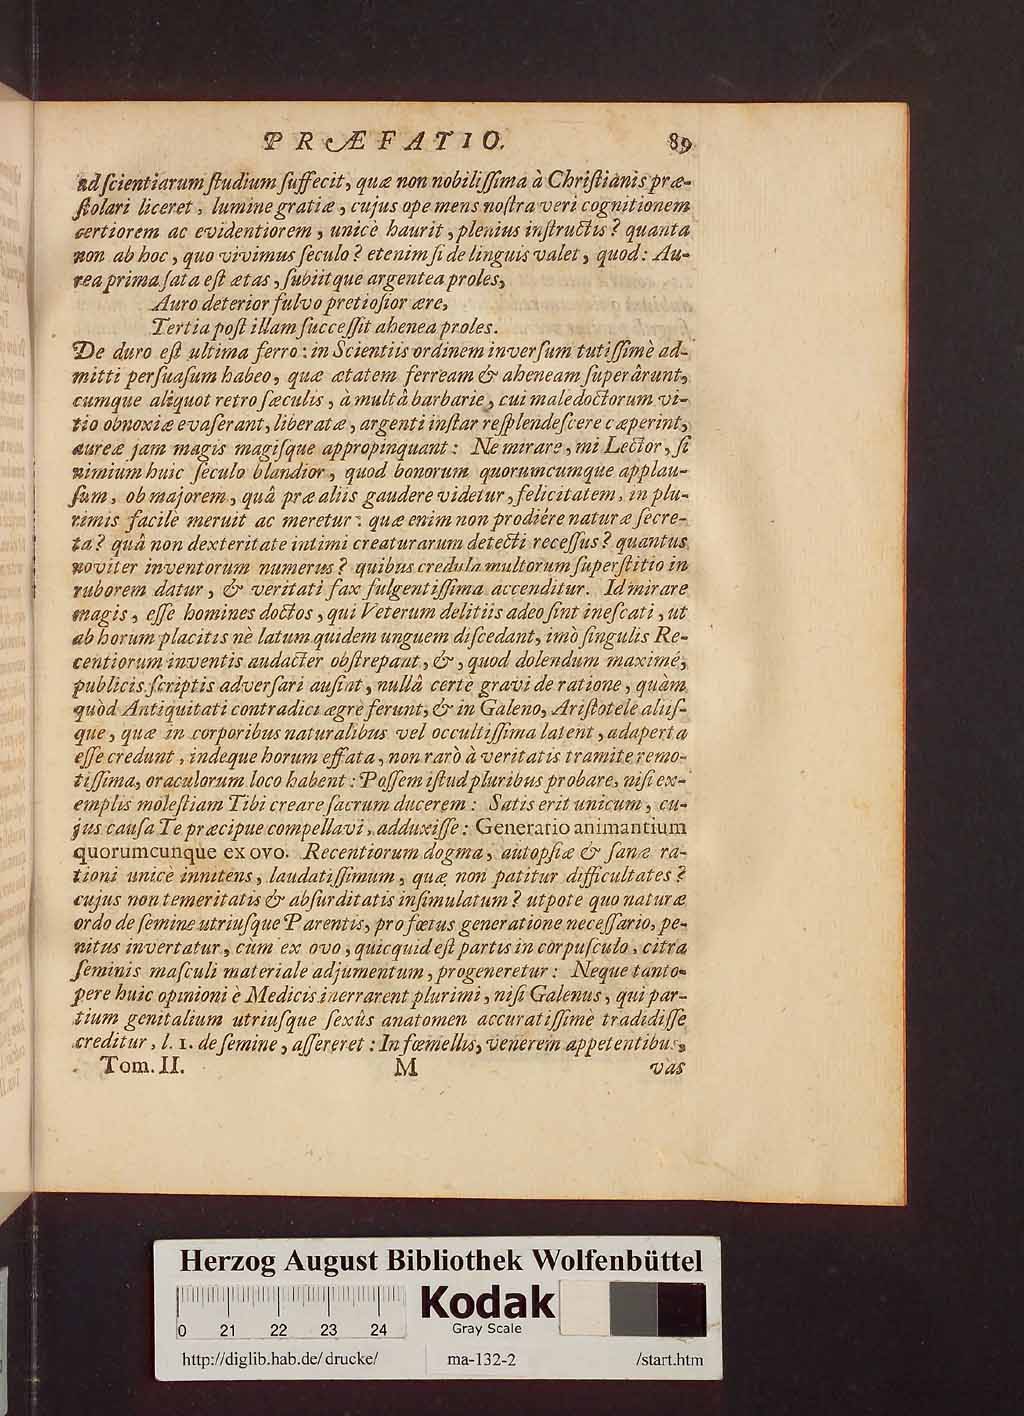 PRÆFATIO. 89
ad scientiarum studium suffecit, quæ non nobilissima à Christianis præ-
stolari liceret, lumine gratiæ, cujus ope mens nostra veri cognitionem
certiorem ac evidentiorem, unicè haurit, plenius instructis? quanta
non ab hoc, quo vivimus seculo? etenim si de linguis valet, quod: Au-
rea prima sata est ætas, subiitque argentea proles,
Auro deterior fulvo pretiosior ære,
Tertia post illam successit ahenea proles.
De duro est ultima ferro: in Scientiis ordinem inversum tutissimè ad-
mitti persuasum habeo, quæ ætatem ferream & aheneam superârunt,
cumque aliquot retro sæculis, à multâ barbarie, cui male doctorum vi-
tio obnoxiæ evaserant, liberatæ, argenti instar resplendescere cæperint,
aureæ jam magis magisque appropinquant: Ne mirare, mi Lector, si
nimium huic seculo blandior, quod bonorum quorumcumque applau-
sum, ob majorem, quâ præ aliis gaudere videtur, felicitatem, in plu-
rimis facile meruit ac meretur: quæ enim non prodiére naturæ secre-
ta? quâ non dexteritate intimi creaturarum detecti recessus? quantus
noviter inventorum numerus? quibus credula multorum superstitio in
ruborem datur, & veritati fax fulgentissima accenditur. Id mirare
magis, esse homines doctos, qui Veterum delitiis adeo sint inescati, ut
ab horum placitis nè latum quidem unguem discedant, imò singulis Re-
centiorum inventis audacter obstrepant, &, quod dolendum maximé,
publicis scriptis adversari ausint, nullâ certe gravi de ratione, quàm
quòd Antiquitati contradici ægrè ferunt, & in Galeno, Aristotele aliis-
que, quæ in corporibus naturalibus vel occultissima latent, adaperta
esse credunt, indeque horum effata, non rarò à veritatis tramite remo-
tissima, oraculorum loco habent: Possem istud pluribus probare, nisi ex-
emplis molestiam Tibi creare sacrum ducerem: Satis erit unicum, cu-
jus causa Te præcipue compellavi, adduxisse: Generatio animantium
quorumcunque ex ovo. Recentiorum dogma, autopsiæ & sanæ ra-
tioni unicè innitens, laudatissimum, quæ non patitur difficultates?
cujus non temeritatis & absurditatis insimulatum? utpote quo naturæ
ordo de semine utriusque Parentis, pro fœtus generatione necessario, pe-
nitus invertatur, cum ex ovo, quicquid est partis in corpusculo, citra
seminis masculi materiale adjumentum, progeneretur: Neque tanto-
pere huic opinioni è Medicis inerrarent plurimi, nisi Galenus, qui par-
tium genitalium utriusque sexûs anatomen accuratissimè tradidisse
creditur, l. 1. de semine, assereret: In fœmellis, venerem appetentibus,
Tom. II. M vas
Herzog August Bibliothek Wolfenbüttel
0 21 22 23 24
Kodak
Gray Scale
http://diglib.hab.de/drucke/ ma-132-2 /start.htm